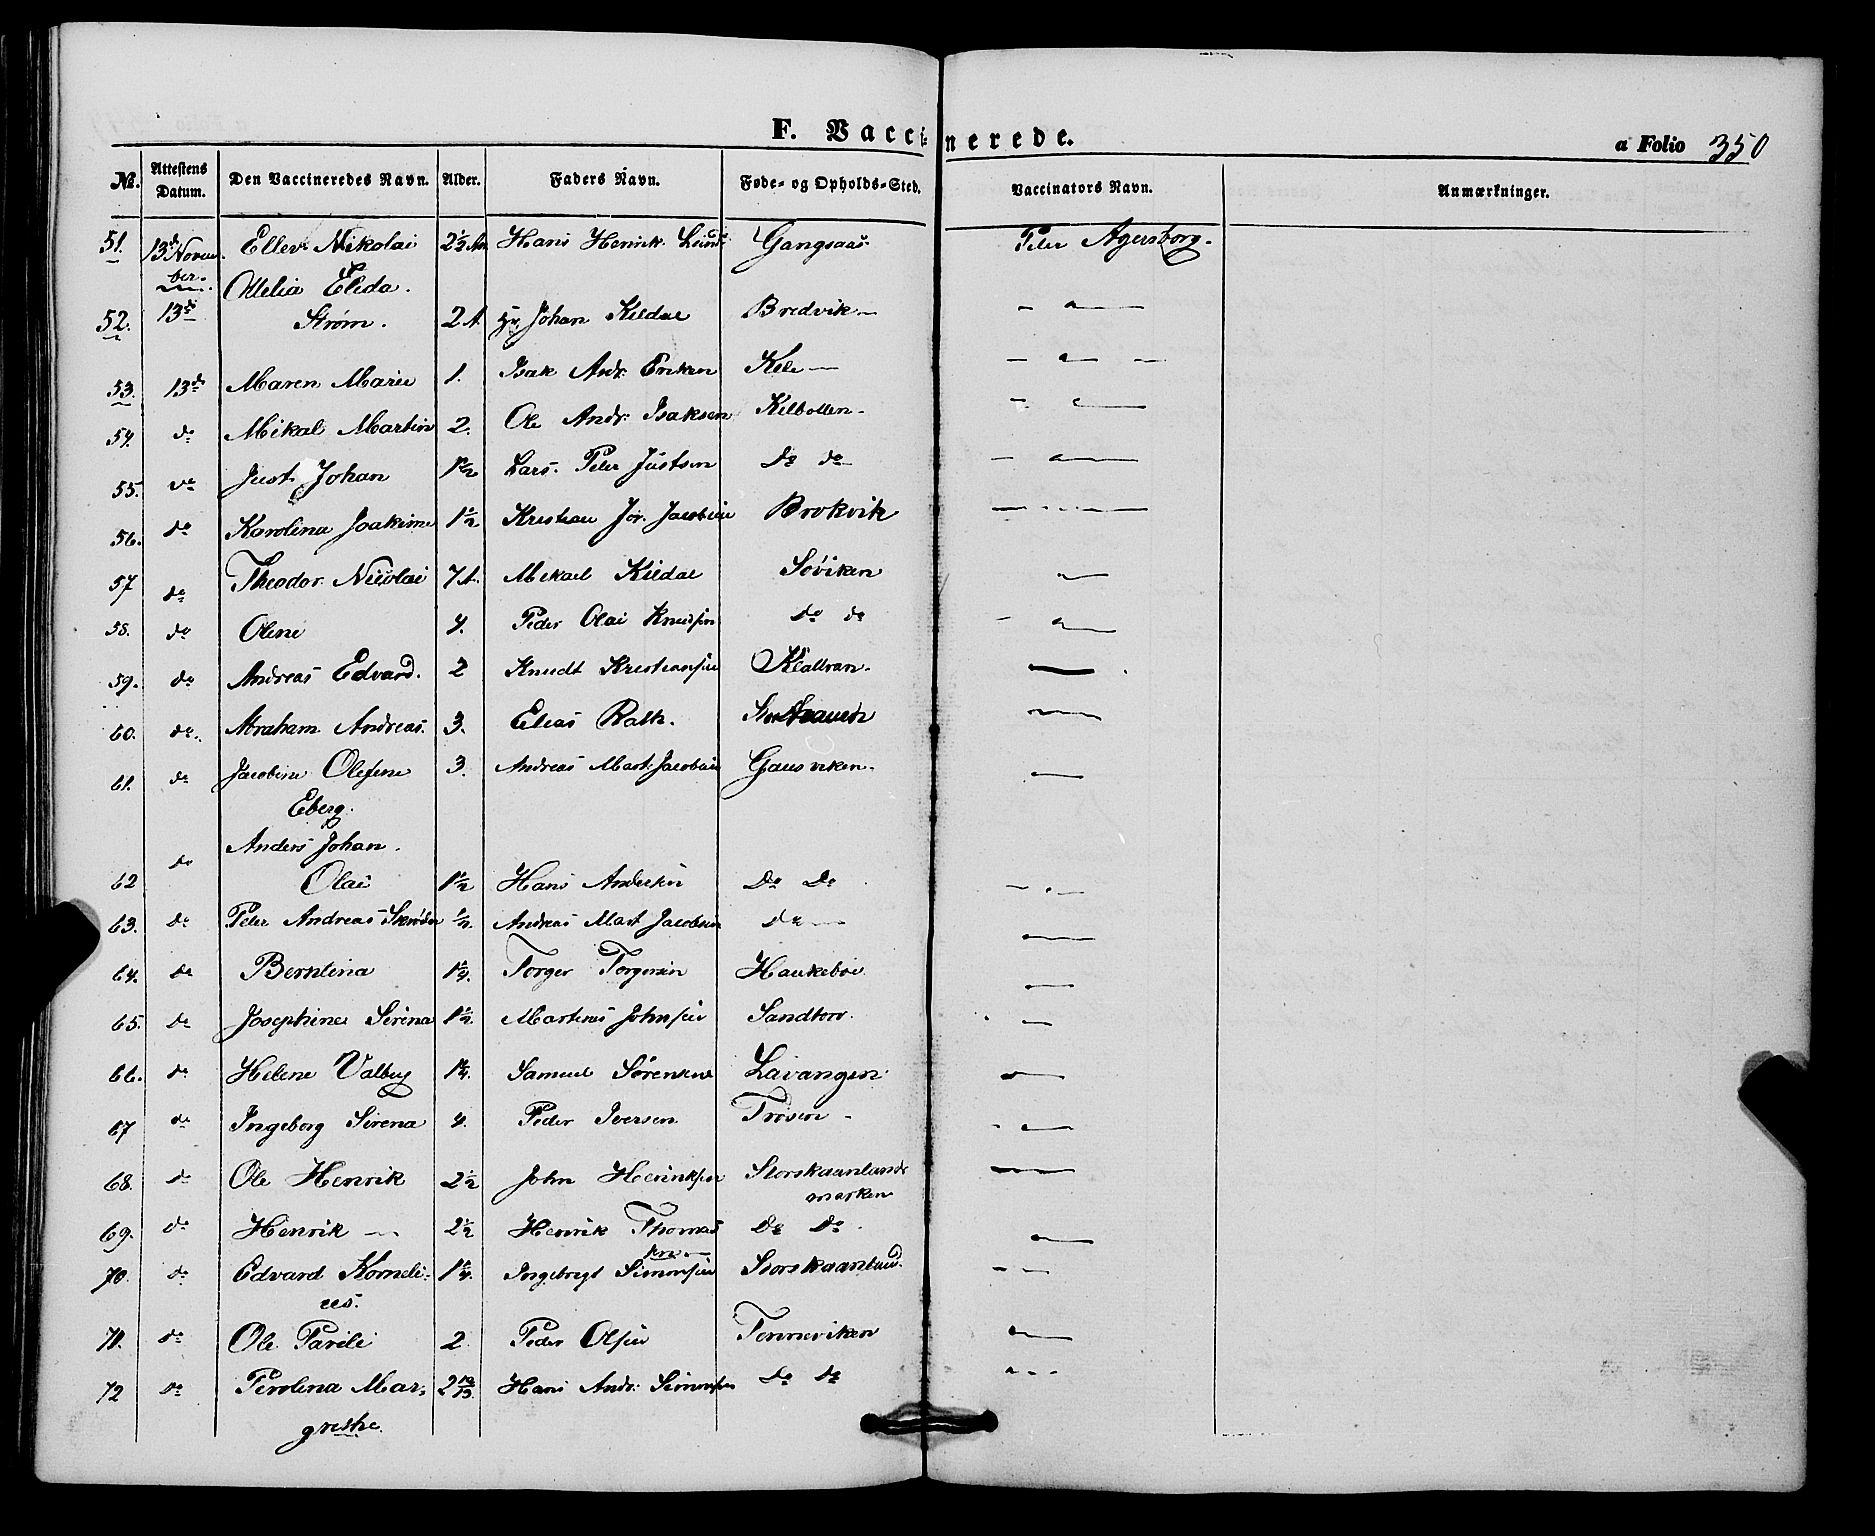 F. Vaccinerede.
a Folio 350
No. Attestens Datum. Den Vaccineredes Navn. Alder. Faders Navn. Føde- og Opholds-Sted. Vaccinators Navn. Anmærkninger.
51. 13de Novem- Ellev Nikolai 2½ Hans Henrik Gangsaas. Peter Agersborg.
ber. Ottelia Elida.
52. 13de Strøm. 2 A. Johan Kildal Bredvik
53. 13de Maren Marie 1. Isak Andr. Eriksen
54. do Mikal Martin 2. Ole Andr: Isaksen Kilbotten
55. do Just Johan 1½ Lars Peter Justsen Do do
56. do Karolina Joakime 1½ Jacobsen Brokvik
57 do Theodor Nicolai 7 A. Mikael Kildal Søviken
58. do Olene 4. Peder Olai Knudsen do do
59. do Andreas Edvard. 2 Knudt Kristiansen
60. do. Abraham Andreas. 3. Elias Rath.
61. do Jacobine Olefine 3. Andreas Mart. Jacobsen Gausviken.
Eberg.
do Anders Johan.
62 Olai 1½ Hans Do Do
63. do Peter Andreas ½ Andreas Mart Jacobsen do
64. do Berntina 1¼. Torger Torgersen Haukebøe
65. do Josephine Sirina 1½. Martinus Johnsen Sandtorv.
66. do Helene Valborg Samuel Sørensen Lavangen
67 do Ingeborg Sirena 4. Peder Iversen
68. do Ole Henrik 2½ John Henriksen Storskaanlands
marken
69. do Henrik 2½ Henrik Thomas Do Do.
sen
70. do Edvard Korneli- 1¼. Ingebregt Simonsen Storskaanland.
us.
71. do Ole 2 Peder Olsen Tenneviken
72 do Perolina Mar- 2 Hans Andr: Simonsen do do
grethe.